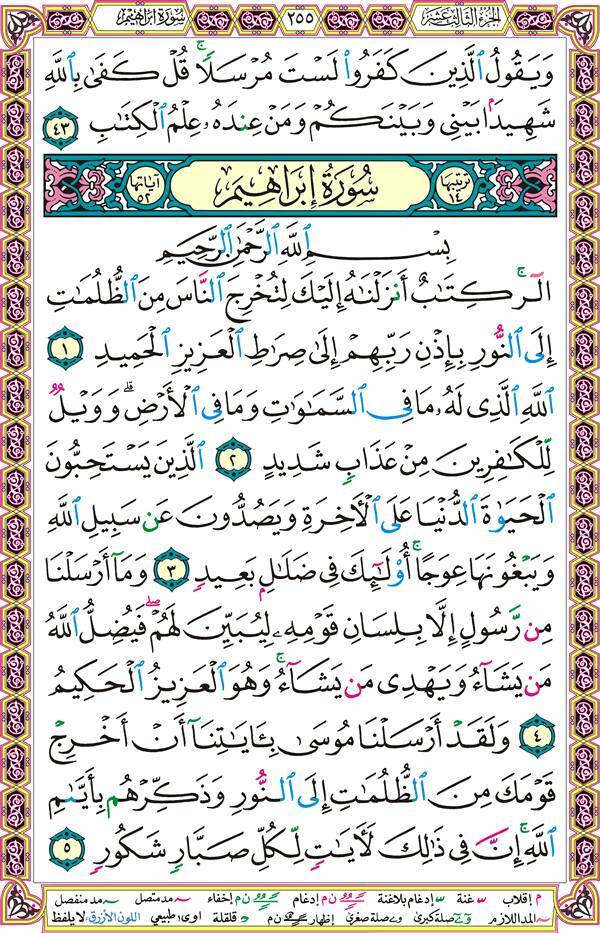 الجزء الثالث عشر ٢٥٥ سورة إبراهيم
وَيَقُولُ ٱلَّذِينَ كَفَرُواْ لَسْتَ مُرْسَلًاۚ قُلْ كَفَىٰ بِٱللَّهِ
شَهِيدًۢا بَيْنِي وَبَيْنَكُمْ وَمَنْ عِندَهُۥ عِلْمُ ٱلْكِتَٰبِ ٤٣
ترتيبها ١٤ سُورَةُ إِبْرَاهِيمَ آياتها ٥٢
بِسْمِ ٱللَّهِ ٱلرَّحْمَٰنِ ٱلرَّحِيمِ
الٓرۚ كِتَٰبٌ أَنزَلْنَٰهُ إِلَيْكَ لِتُخْرِجَ ٱلنَّاسَ مِنَ ٱلظُّلُمَٰتِ
إِلَى ٱلنُّورِ بِإِذْنِ رَبِّهِمْ إِلَىٰ صِرَٰطِ ٱلْعَزِيزِ ٱلْحَمِيدِ ١
ٱللَّهِ ٱلَّذِي لَهُۥ مَا فِي ٱلسَّمَٰوَٰتِ وَمَا فِي ٱلْأَرْضِۗ وَوَيْلٌ
لِّلْكَٰفِرِينَ مِنْ عَذَابٍ شَدِيدٍ ٢ ٱلَّذِينَ يَسْتَحِبُّونَ
ٱلْحَيَوٰةَ ٱلدُّنْيَا عَلَى ٱلْأٓخِرَةِ وَيَصُدُّونَ عَن سَبِيلِ ٱللَّهِ
وَيَبْغُونَهَا عِوَجًاۚ أُوْلَٰٓئِكَ فِي ضَلَٰلٍۭ بَعِيدٍ ٣ وَمَآ أَرْسَلْنَا
مِن رَّسُولٍ إِلَّا بِلِسَانِ قَوْمِهِۦ لِيُبَيِّنَ لَهُمْۖ فَيُضِلُّ ٱللَّهُ
مَن يَشَآءُ وَيَهْدِي مَن يَشَآءُۚ وَهُوَ ٱلْعَزِيزُ ٱلْحَكِيمُ
٤ وَلَقَدْ أَرْسَلْنَا مُوسَىٰ بِـَٔايَٰتِنَآ أَنْ أَخْرِجْ
قَوْمَكَ مِنَ ٱلظُّلُمَٰتِ إِلَى ٱلنُّورِ وَذَكِّرْهُم بِأَيَّىٰمِ
ٱللَّهِۚ إِنَّ فِي ذَٰلِكَ لَأٓيَٰتٍ لِّكُلِّ صَبَّارٍ شَكُورٍ ٥
م إقلاب س غنة س إدغام بلاغنة ن م إدغام ن م إخفاء مد متصل مد منفصل
المد اللازم صلة كبرى صلة صغرى إظهار ن م قلقلة اوى طبيعي اللون الأزرق: لا يلفظ